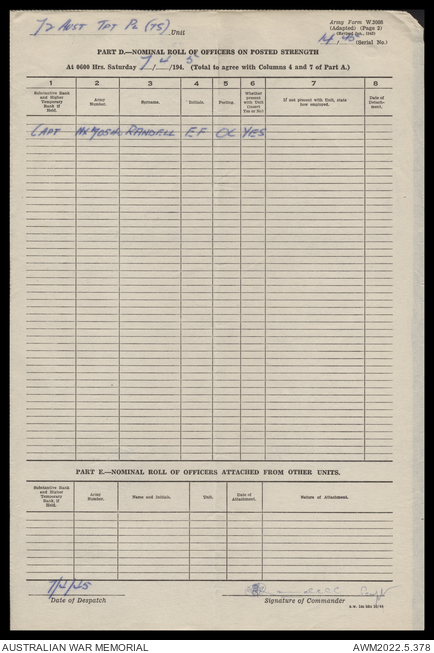 72 AUST TPT PL (TS) Unit
Army Form W.3008
(Adapted) (Page 2)
(Serial No.)
PART D.—NOMINAL ROLL OF OFFICERS ON POSTED STRENGTH
At 0600 Hrs. Saturday 7/4/1945 (Total to agree with Columns 4 and 7 of Part A.)
1 2 3 4 5 6 7 8
Substantive Rank and Higher Temporary Rank if Held.
Army Number.
Surname.
Initials.
Posting.
Whether present with Unit (Insert Yes or No)
If not present with Unit, state how employed.
Date of Detachment.
CAPT RANDELL EF OC YES
PART E.—NOMINAL ROLL OF OFFICERS ATTACHED FROM OTHER UNITS.
Substantive Rank and Higher Temporary Rank if Held.
Army Number.
Name and Initials.
Unit.
Date of Attachment.
Nature of Attachment.
7/4/45
Date of Despatch
Signature of Commander
AUSTRALIAN WAR MEMORIAL
AWM2022.5.378